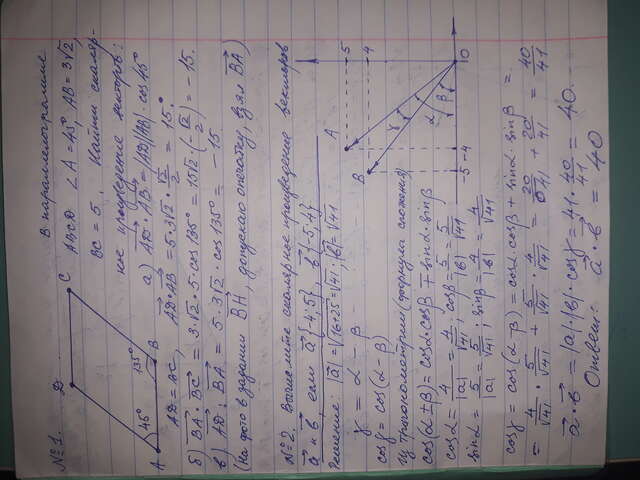 №1. В параллелограмме
ABCD ∠A = 45°, AB = 3√2,
BC = 5. Найти скаляр-
ное произведение векторов:
D C A B 45° 135°
а) AD · AB = |AD||AB| · cos 45°
AD = BC, AD · AB = 5 · 3√2 · √2/2 = 15.
б) BA · BC = 3 · √2 · 5 · cos 135° = 15√2 · (-√2/2) = -15.
в) AD · BA = 5 · 3√2 · cos 135° = -15
(На фото в задании BH, допускаю опечатку, взял BA)
№2. Вычислите скалярное произведение векторов
a и b, если a{-4; 5}, b{-5; 4}
Решение: |a| = √16+25 = √41; |b| = √41
γ = α - β
cos γ = cos(α - β)
Из тригонометрии (формула сложения)
cos(α ± β) = cosα · cosβ ∓ sinα · sinβ
cosα = 4/|a| = 4/√41; cosβ = 5/|b| = 5/√41
sinα = 5/|a| = 5/√41; sinβ = 4/|b| = 4/√41
A B 5 4 -5 -4 0 γ α β
cosγ = cos(α - β) = cosα · cosβ + sinα · sinβ =
= 4/√41 · 5/√41 + 5/√41 · 4/√41 = 20/41 + 20/41 = 40/41
a · b = |a| · |b| · cosγ = 41 · 40/41 = 40.
Ответ: a · b = 40